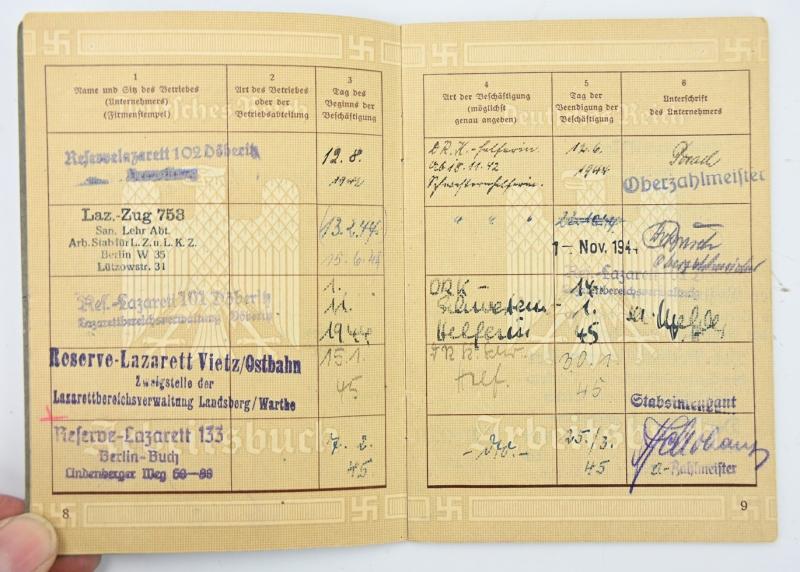 1
Name und Sitz des Betriebes
(Unternehmers)
(Firmenstempel)
2
Art des Betriebes
oder der
Betriebsabteilung
3
Tag des
Beginns der
Beschäftigung
Reservelazarett 102 Döberitz
12.8.
Laz.-Zug 753
San. Lehr Abt.
Arb. Stab für L.Z. u. L.K.Z.
Berlin W 35
Lützowstr. 31
13.2.44.
Res.-Lazarett 102 Döberitz
Lazarettbereichsverwaltung Döberitz
1.
11.
1944
Reserve-Lazarett Vietz/Ostbahn
Zweigstelle der
Lazarettbereichsverwaltung Landsberg/Warthe
15.1.
45
Reserve-Lazarett 133
Berlin-Buch
Lindenberger Weg
7. 2.
45
8
4
Art der Beschäftigung
(möglichst
genau angeben)
5
Tag der
Beendigung der
Beschäftigung
6
Unterschrift
des Unternehmers
D.R.K.-Helferin
ab 18.11.42
Schwesternhelferin.
12.6.
1944
Oberzahlmeister
" " "
1- Nov. 194
Res.-Lazarett
Lazarettbereichsverwaltung
DRK-
Schwestern-
Helferin
14.
1.
45
30.1.
45
Stabsintendant
25./3.
45
Zahlmeister
9
Deutsches Reich
Arbeitsbuch
Deutsches Reich
Arbeitsbuch